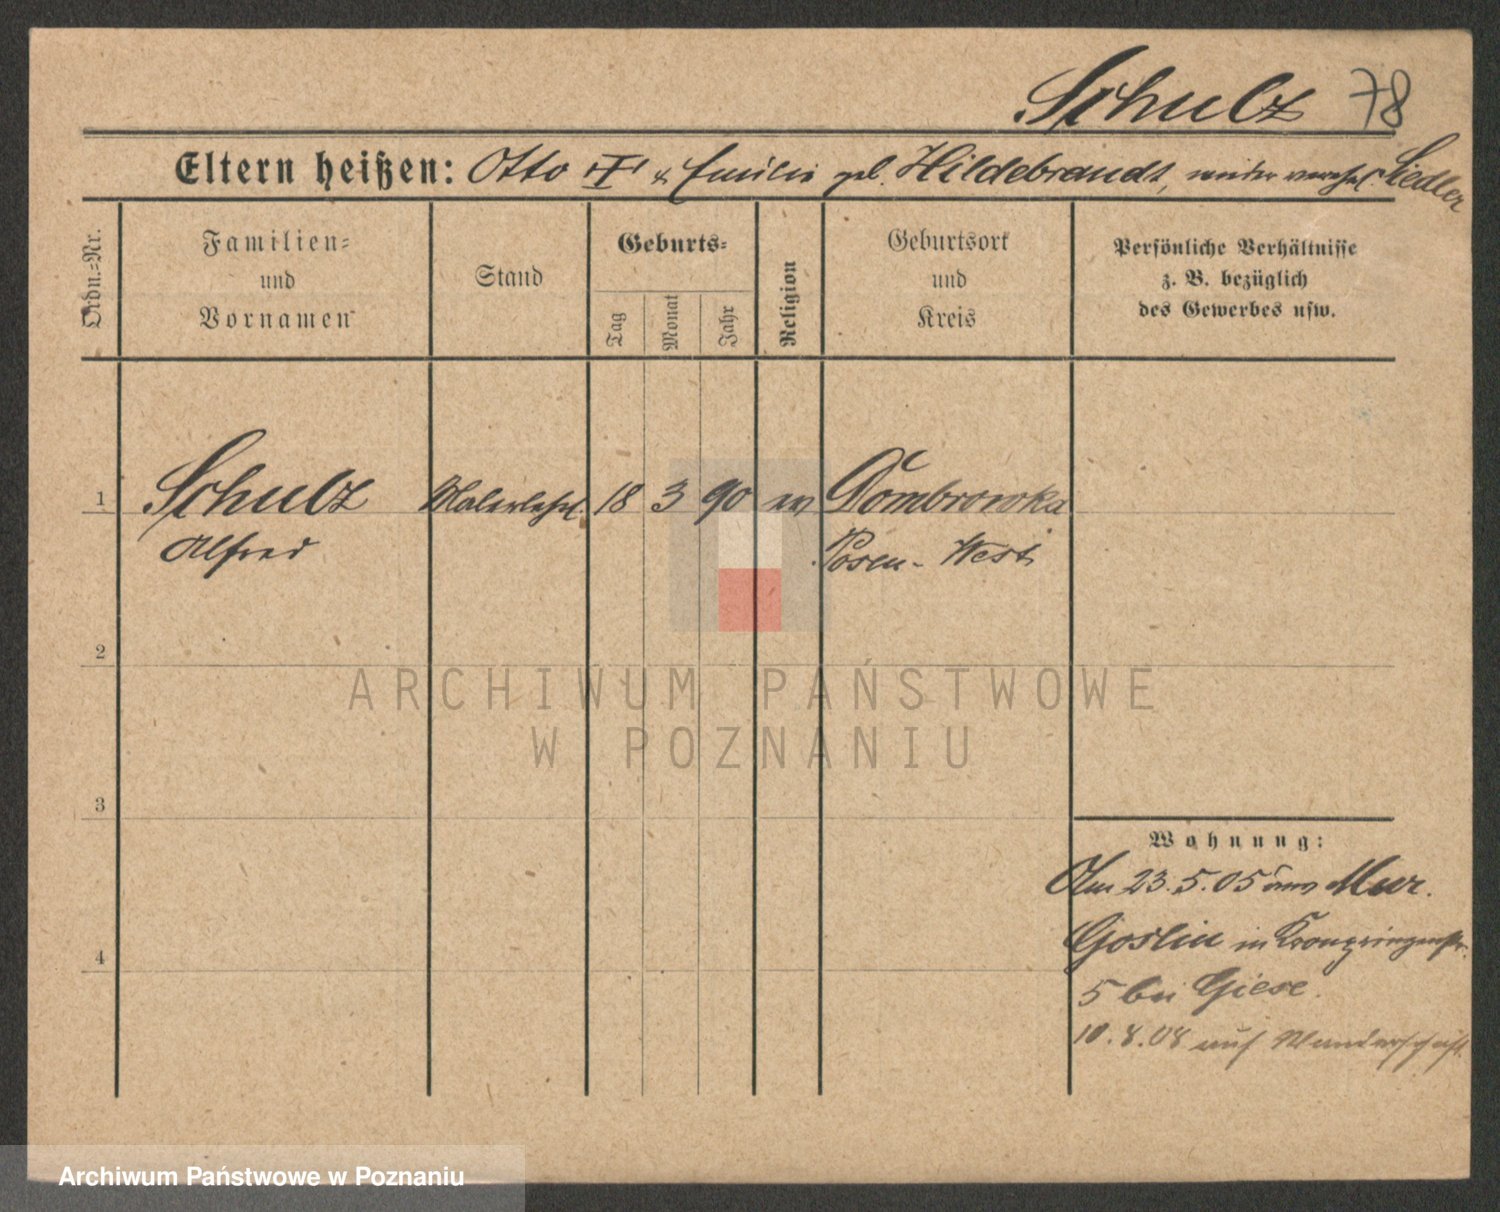 Schulz 78
Eltern heißen: Otto † & Emilie geb. Hildebrandt, wieder verehel. Siedler
Ordn.=Nr.
Familien=
und
Vornamen
Stand
Geburts=
Tag
Monat
Jahr
Religion
Geburtsort
und
Kreis
Persönliche Verhältnisse
z. B. bezüglich
des Gewerbes usw.
1 Schulz Malerlehrl. 18 3 90 ev Dombrowka
Alfred Posen-West
2
ARCHIWUM PAŃSTWOWE
W POZNANIU
3
Wohnung:
Am 23.5.05 aus Mur.
Goslin in Kronprinzenstr.
4
5 bei Giese.
10.8.08 auf Wanderschaft
Archiwum Państwowe w Poznaniu